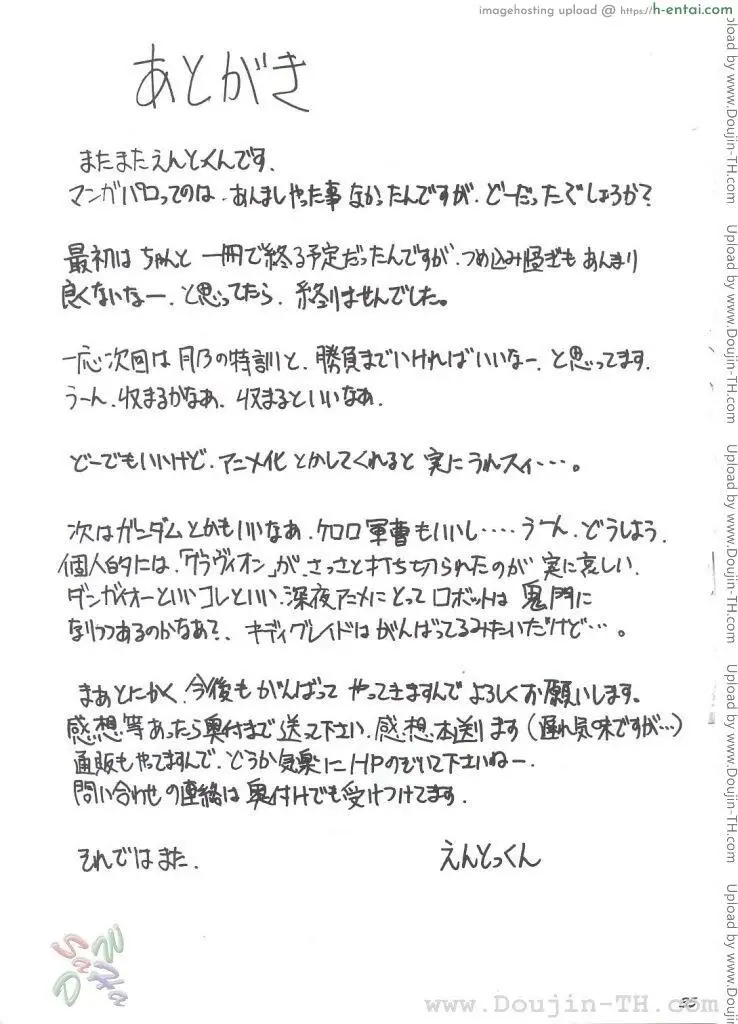 imagehosting upload @ https://h-entai.com
あとがき
またまたえんとっくんです.
マンガパロってのは、あんましやった事なかったんですが、どーだったでしょうか?
最初はちゃんと一冊で終る予定だったんですが、つめ込み過ぎもあんまり
良くないなー、と思ってたら、終りませんでした。
一応次回は月乃の特訓と、勝負までいければいいなー、と思ってます.
うーん、収まるかなあ、収まるといいなあ.
どーでもいいけど、アニメ化とかしてくれると実にうれスィ・・・。
次はガンダムとかもいいなあ、ケロロ軍曹もいいし・・・・うーん、どうしよう.
個人的には、「グラヴィオン」が、さっさと打ち切られたのが実に哀しい.
ダンガイオーといいコレといい、深夜アニメにとってロボットは鬼門に
なりつつあるのかなあ?、キディグレイドはがんばってるみたいだけど・・・。
まあとにかく、今後もがんばってやってきますんでよろしくお願いします。
感想等あったら奥付まで送って下さい、感想本送ります(遅れ気味ですが・・・)
通販もやってますんで、どうか気楽にHPのぞいて下さいねー.
問い合わせの連絡は奥付けでも受けつけてます.
それではまた.
えんとっくん
35
www.Doujin-TH.com
Upload by www.Doujin-TH.com
Upload by www.Doujin-TH.com
Upload by www.Doujin-TH.com
Upload by www.Doujin-TH.com
Upload by www.Doujin-TH.com